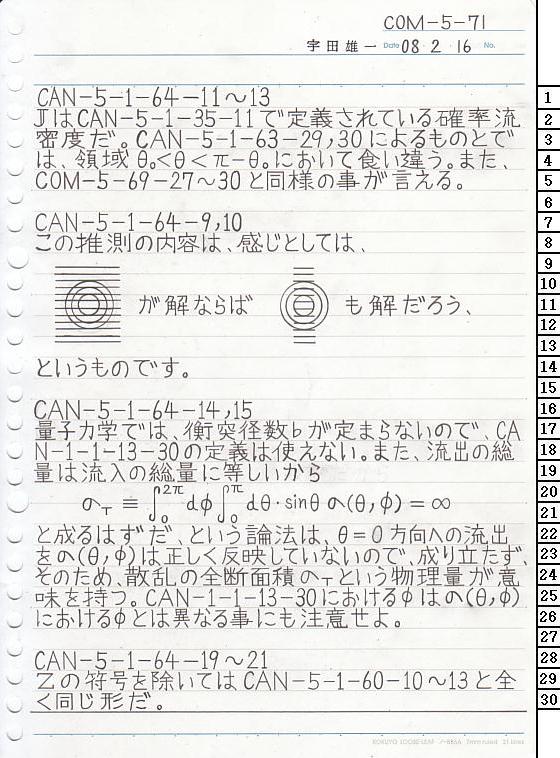 COM-5-71
宇田雄一 Date 08・2・16 No.
CAN-5-1-64-11～13
JはCAN-5-1-35-11で定義されている確率流
密度だ。CAN-5-1-63-29,30によるものとで
は、領域 θ₀<θ<π-θ₀において食い違う。また、
COM-5-69-27～30と同様の事が言える。
CAN-5-1-64-9,10
この推測の内容は、感じとしては、
が解ならば も解だろう、
というものです。
CAN-5-1-64-14,15
量子力学では、衝突径数bが定まらないので、CA
N-1-1-13-30の定義は使えない。また、流出の総
量は流入の総量に等しいから
σ_T ≡ ∫₀^2π dφ ∫₀^π dθ・sinθ σ(θ,φ) = ∞
と成るはずだ、という論法は、θ=0方向への流出
をσ(θ,φ)は正しく反映していないので、成り立たず、
そのため、散乱の全断面積σ_Tという物理量が意
味を持つ。CAN-1-1-13-30におけるφはσ(θ,φ)
におけるφとは異なる事にも注意せよ。
CAN-5-1-64-19～21
Zの符号を除いてはCAN-5-1-60-10～13と全
く同じ形だ。
KOKUYO LOOSE-LEAF ノ-886A 7mm ruled 21 lines
1
2
3
4
5
6
7
8
9
10
11
12
13
14
15
16
17
18
19
20
21
22
23
24
25
26
27
28
29
30